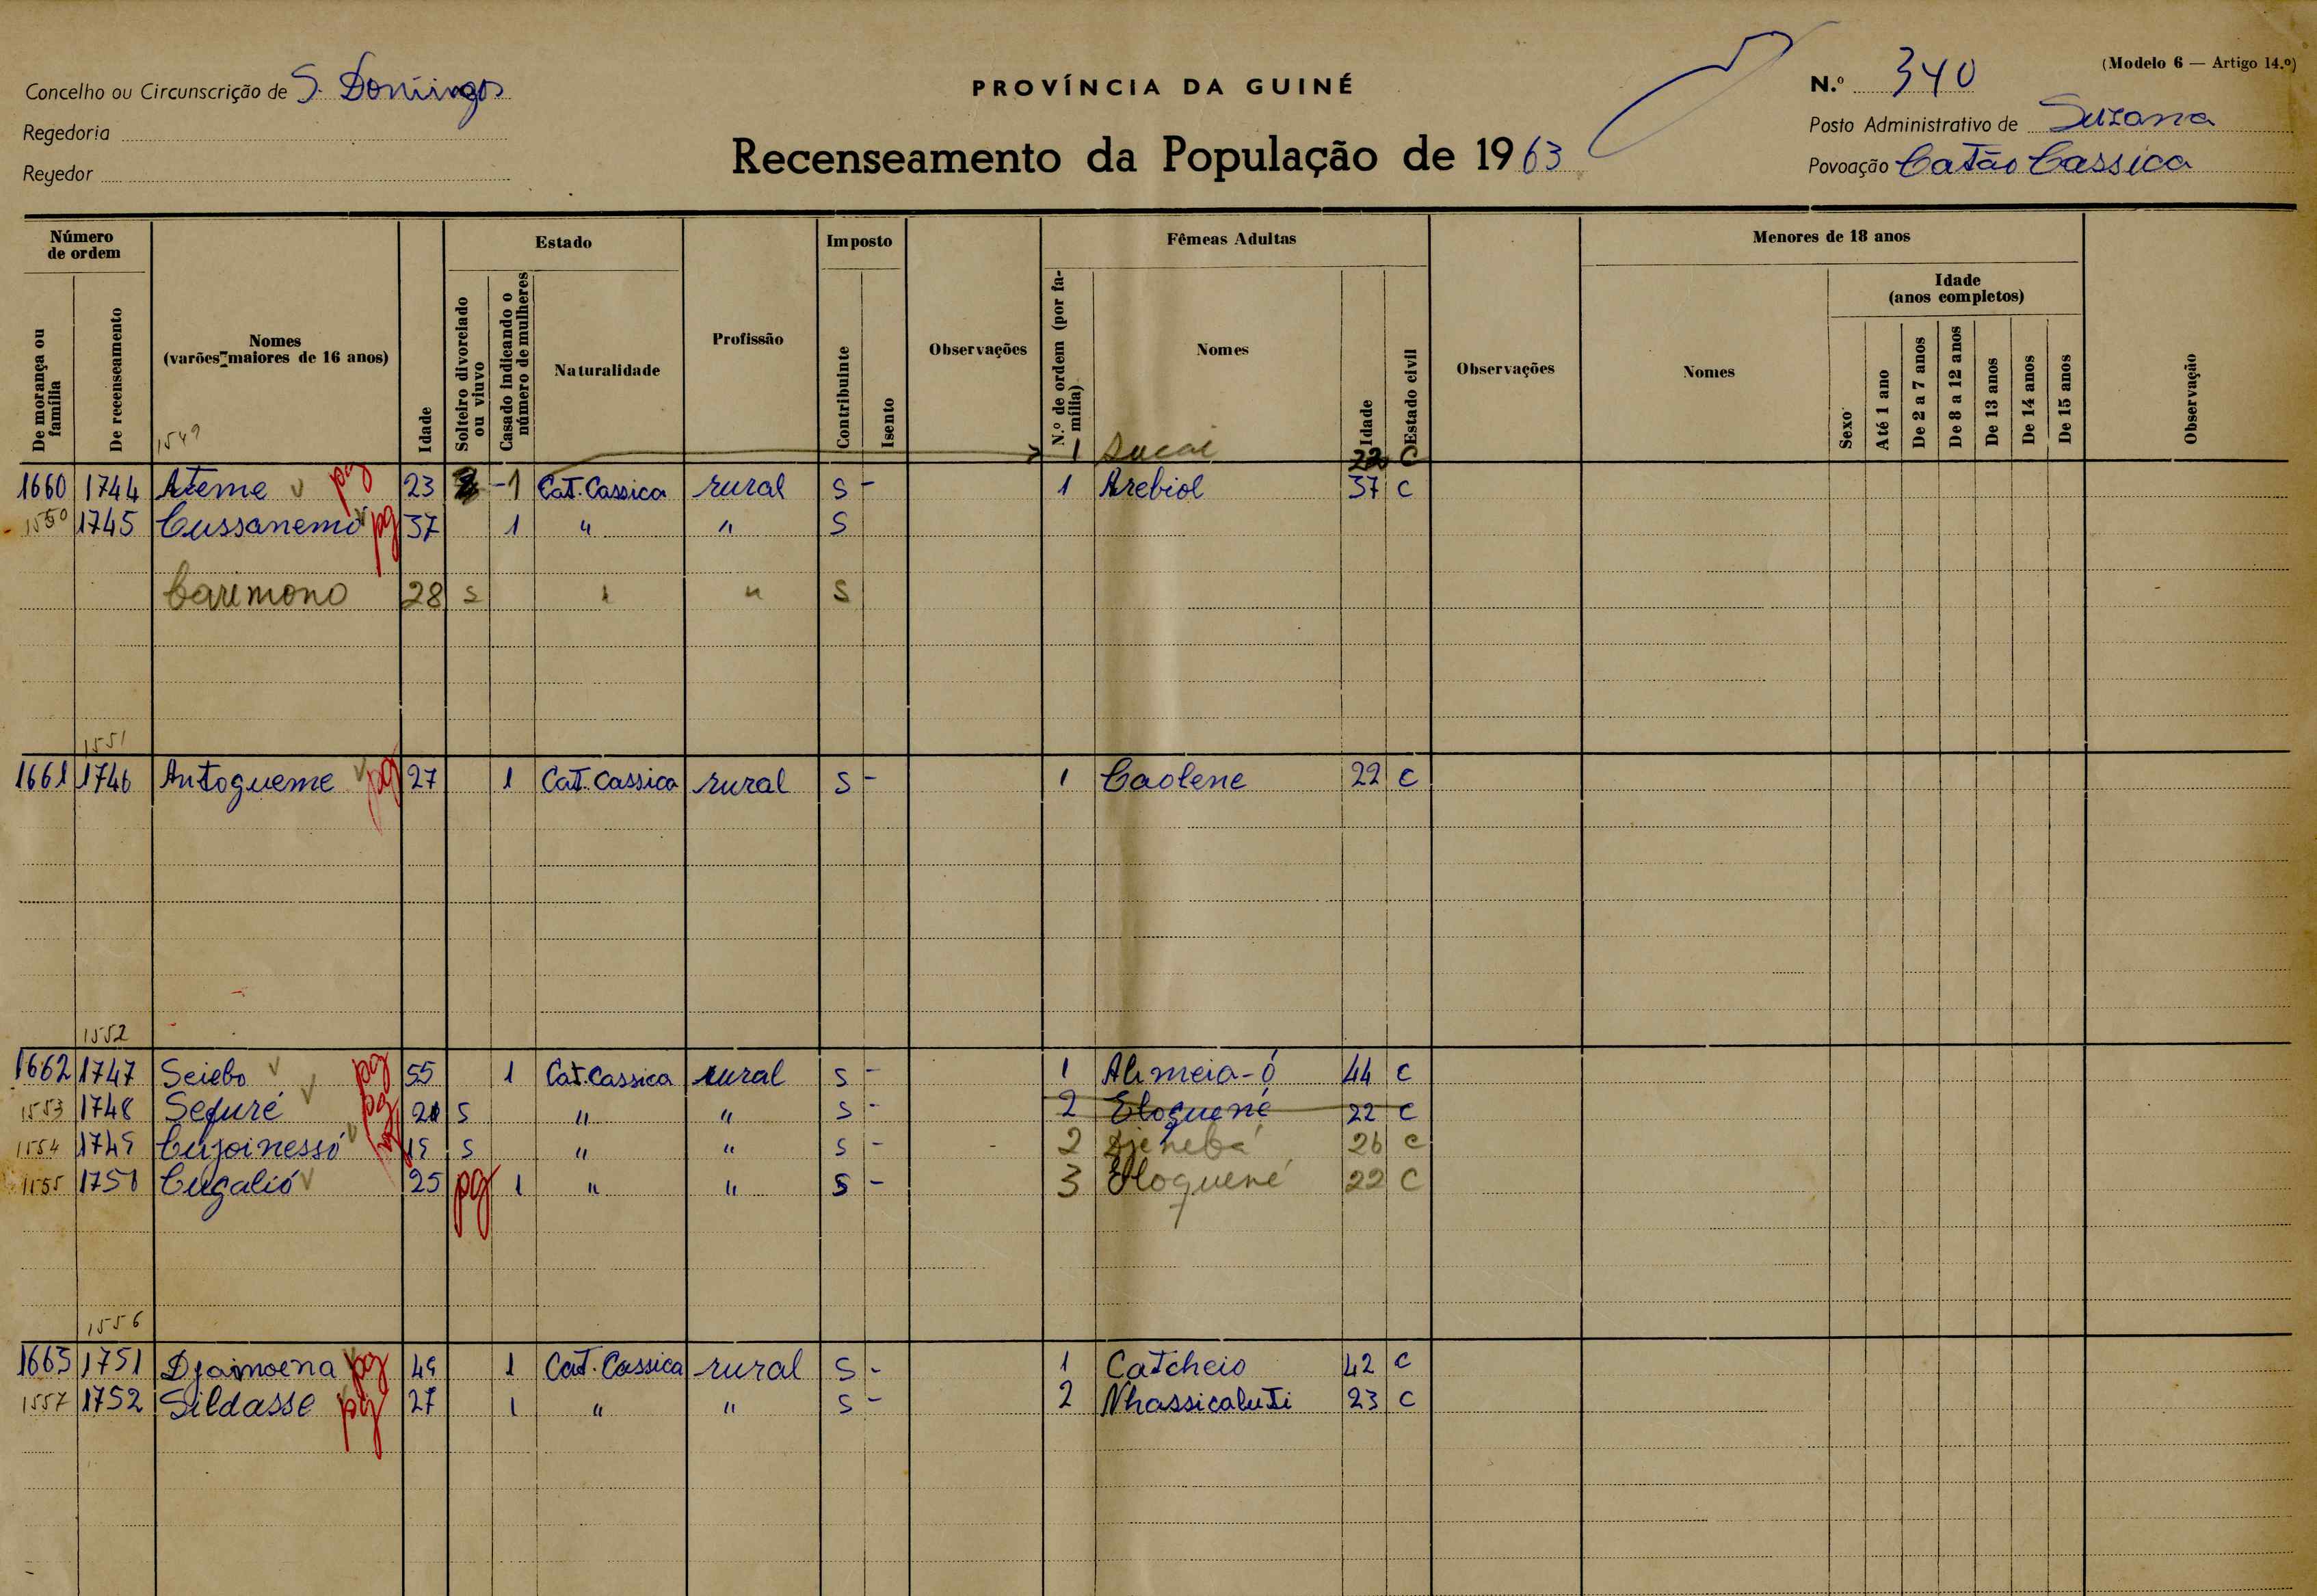 (Modelo 6 — Artigo 14.º)
Concelho ou Circunscrição de S. Domingos
PROVÍNCIA DA GUINÉ
N.º 340
Regedoria
Posto Administrativo de Suzana
Recenseamento da População de 1963
Reyedor
Povoação Catão Cassica
Número de ordem
De morança ou família
De recenseamento
Nomes
(varões maiores de 16 anos)
1549
Idade
Estado
Solteiro divorciado ou viuvo
Casado indicando o número de mulheres
Naturalidade
Profissão
Imposto
Contribuinte
Isento
Observações
Fêmeas Adultas
N.º de ordem (por família)
Nomes
Idade
Estado civil
Observações
Menores de 18 anos
Nomes
Sexo
Idade
(anos completos)
Até 1 ano
De 2 a 7 anos
De 8 a 12 anos
De 13 anos
De 14 anos
De 15 anos
Observação
1 Sucai 22 C
1660 1744 Ateme v pg 23 -1 Cat. Cassica rural S - 1 Arebiol 37 C
1550 1745 Cussanemo v pg 37 1 " " S
Carimono 28 S " " S
1551
1661 1746 Antogueme v pg 27 1 Cat. Cassica rural S - 1 Caolene 22 C
1552
1662 1747 Seiebo v pg 55 1 Cat. Cassica rural S - 1 Alimeia-ó 44 C
1553 1748 Sefuré v pg 21 S " " S - 2 Eloguené 22 C
1554 1749 Cujoinessó v pg 19 S " " S - 2 Djenebá 26 C
1555 1750 Cugalió v 25 pg 1 " " S - 3 Eloguené 22 C
1556
1663 1751 Djamoena v pg 49 1 Cat. Cassica rural S - 1 Catcheio 42 C
1557 1752 Sildasse pg 27 1 " " S - 2 Nhassicaluti 23 C